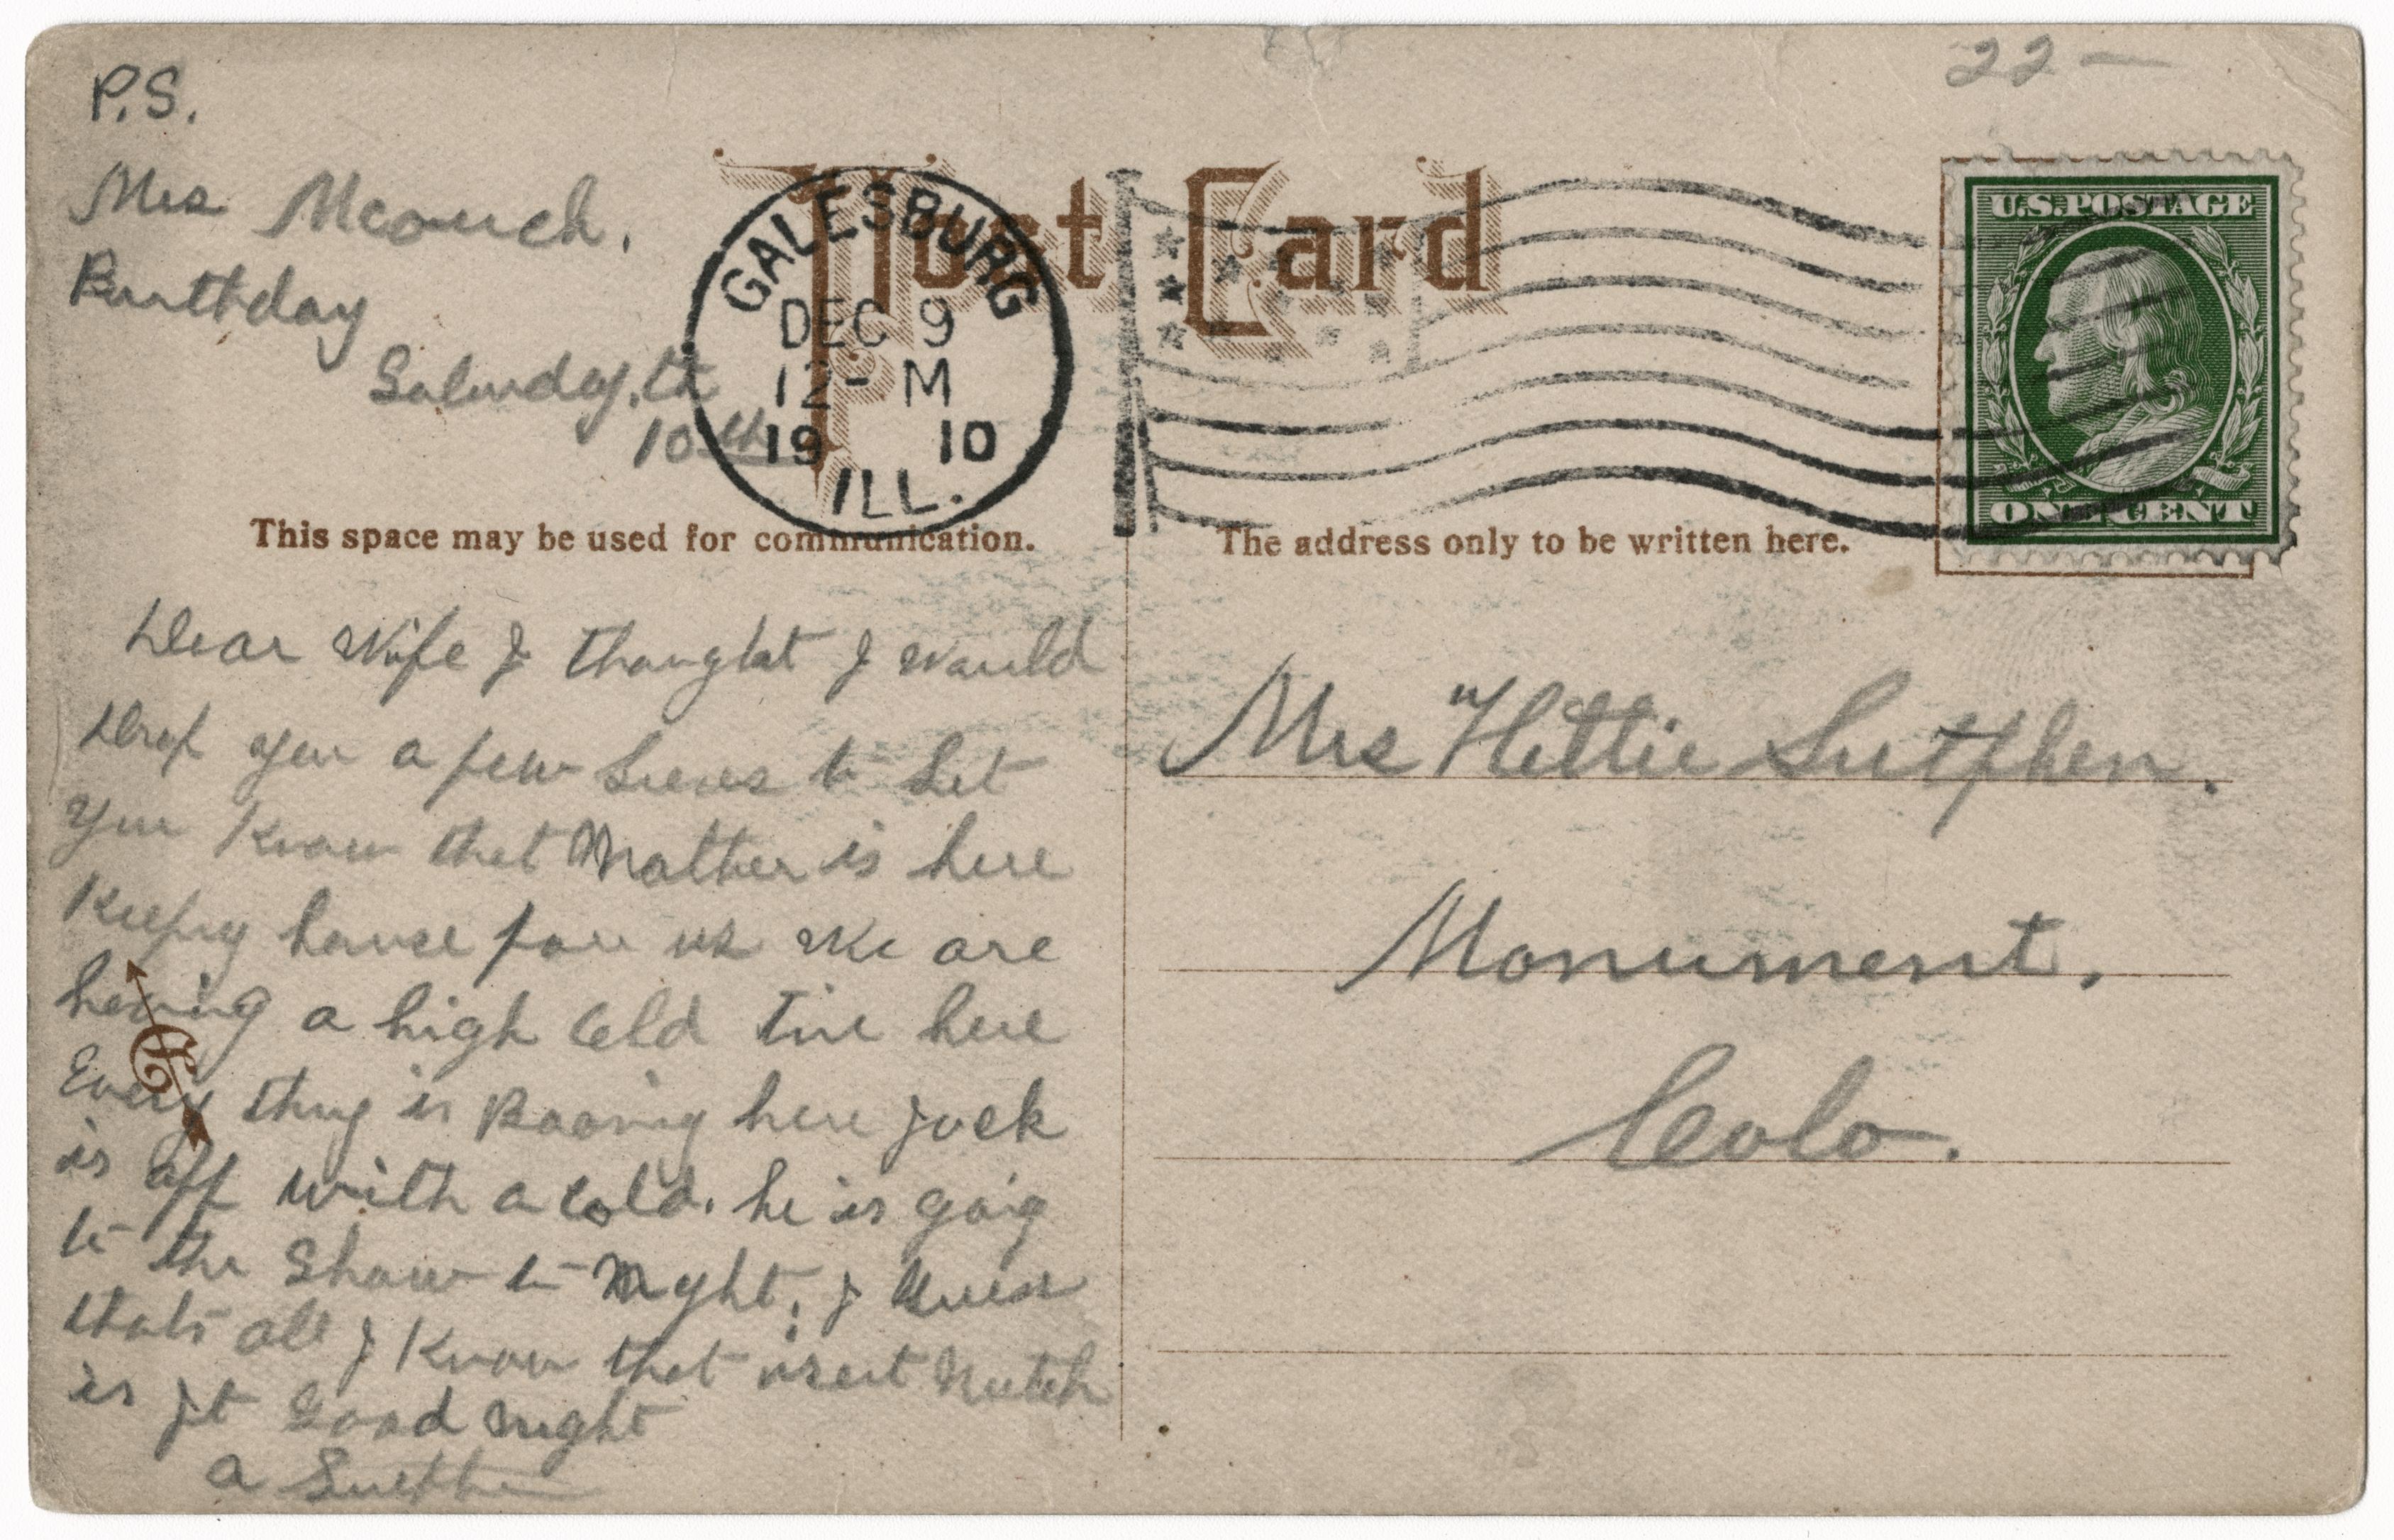 22 —
P.S.
Mrs Mcouch.
Burthday
Saturday, th
10th
Post Card
GALESBURG
DEC 9
12 - M
19 10
ILL.
U.S. POSTAGE
ONE CENT
This space may be used for communication.
The address only to be written here.
Dear Wife I thought I would
Drop you a few Lines to Let
you Know that Mother is here
Keeping house for us We are
having a high Old Time here
Every thing is Booming here Jack
is off with a cold. he is going
to the Show to Night. I Guess
thats all I Know that isent Mutch
is it Good night
a Sutphen
Mrs Hettie Sutphen.
Monument.
Colo.